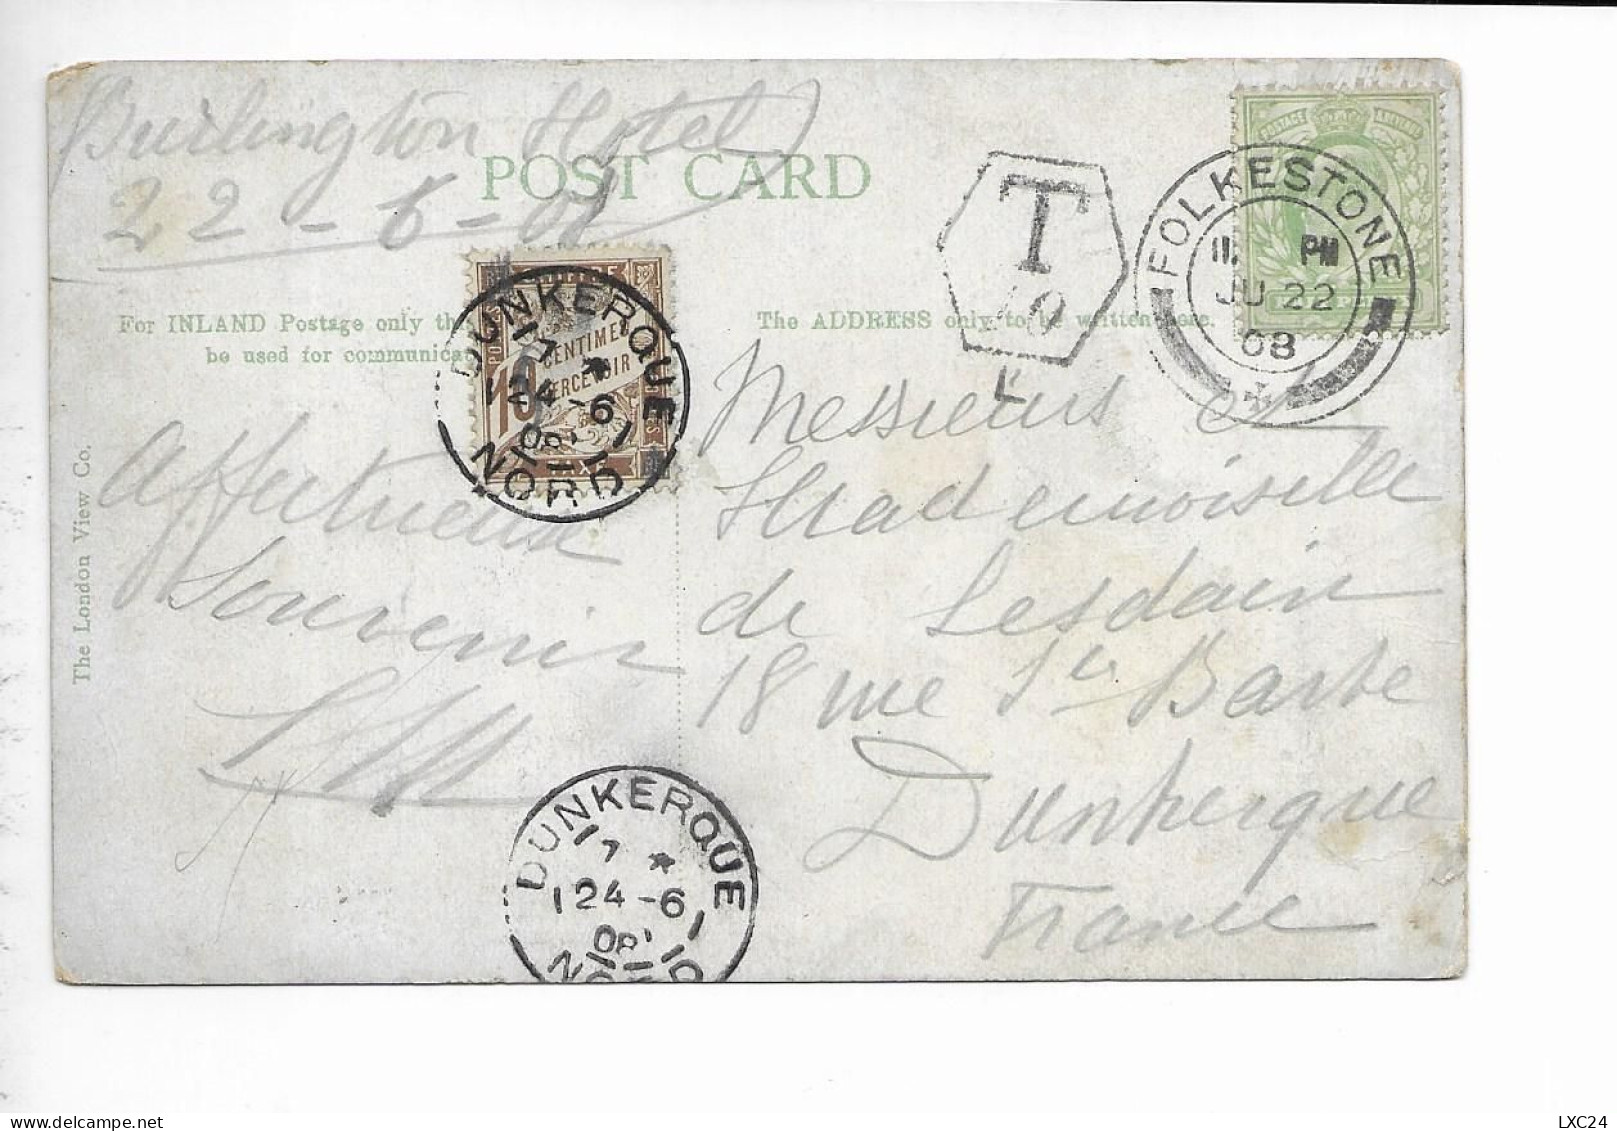 (Burlington Hotel)
22-6-08
POST CARD
T
10
F
FOLKESTONE
11. PM
JU 22
08
POSTAGE
For INLAND Postage only th
be used for communicat
The ADDRESS only to be written here.
DUNKERQUE
7 *
24 -6
08
NORD
10 CENTIMES
PERCEVOIR
TAXE
The London View Co.
Affectueux
Souvenir
Messieurs et
Mademoiselle
de Lesdain
18 rue Ste Barbe
Dunkerque
France
DUNKERQUE
7 *
24 -6
08
NORD
LXC24